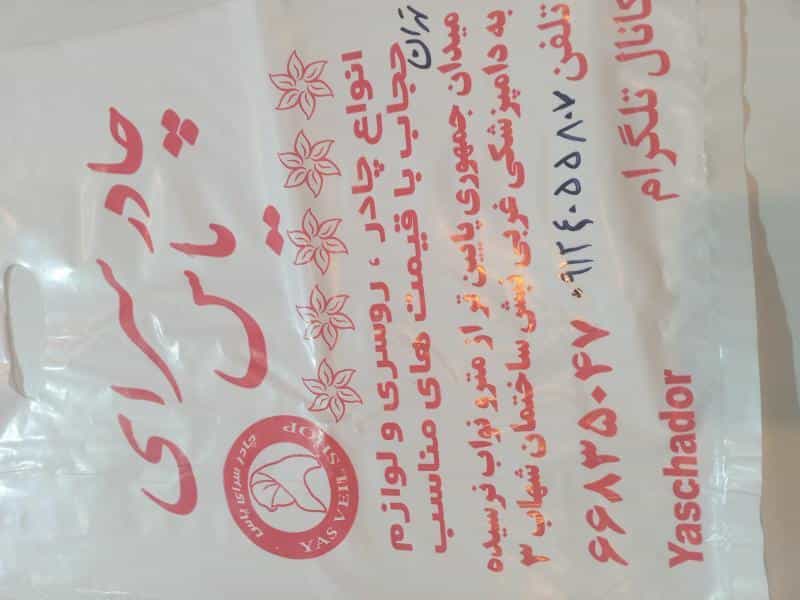 چادر سرای
یاس
چادر سرای یاس
YAS VEIL SHOP
انواع چادر ، روسری و لوازم
حجاب با قیمت های مناسب
تهران
میدان جمهوری پایین تر از مترو نواب نرسیده
به دامپزشکی غربی نبش ساختمان شهاب ۳
تلفن ۰۹۱۲۴۰۵۵۸۰۷
۶۶۸۳۵۰۴۷
کانال تلگرام
Yaschador